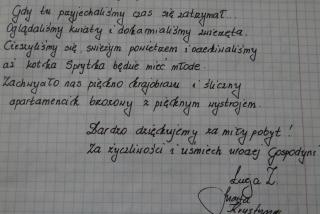 Gdy tu przyjechaliśmy czas się zatrzymał...
Oglądaliśmy kwiaty i dokarmialiśmy zwierzęta.
Cieszyliśmy się, świeżym powietrzem i oczekiwaliśmy
aż kotka Sprytka będzie mieć młode.
Zachwyciło nas piękno krajobrazu i śliczny
apartamencik brzozowy z pięknym wystrojem.
Bardzo dziękujemy za miły pobyt!
Za życzliwość i uśmiech Gospodyni
Z.
Krystyna